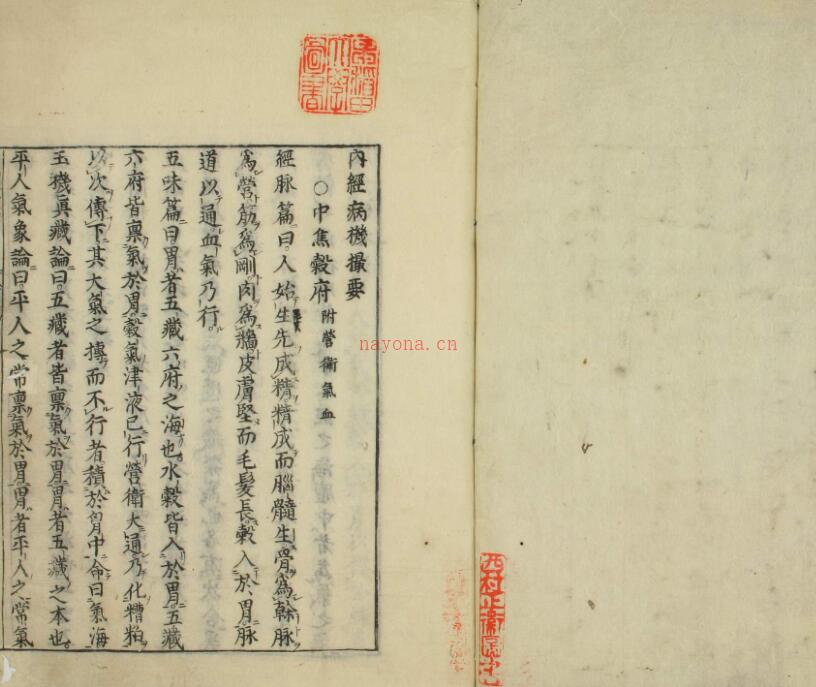 內經病機撮要
○中焦穀府 附營衛氣血
經脉篇曰人始生先成精精成而腦髓生骨爲幹脉
爲營筋爲剛肉爲牆皮膚堅而毛髮長穀入於胃脉
道以通血氣乃行
五味篇曰胃者五藏六府之海也水穀皆入於胃五藏
六府皆禀氣於胃穀氣津液已行營衛大通乃化糟粕
以次傳下其大氣之摶而不行者積於胷中命曰氣海
玉機眞藏論曰五藏者皆禀氣於胃胃者五藏之本也
平人氣象論曰平人之常禀氣於胃胃者平人之常氣
nayona.cn